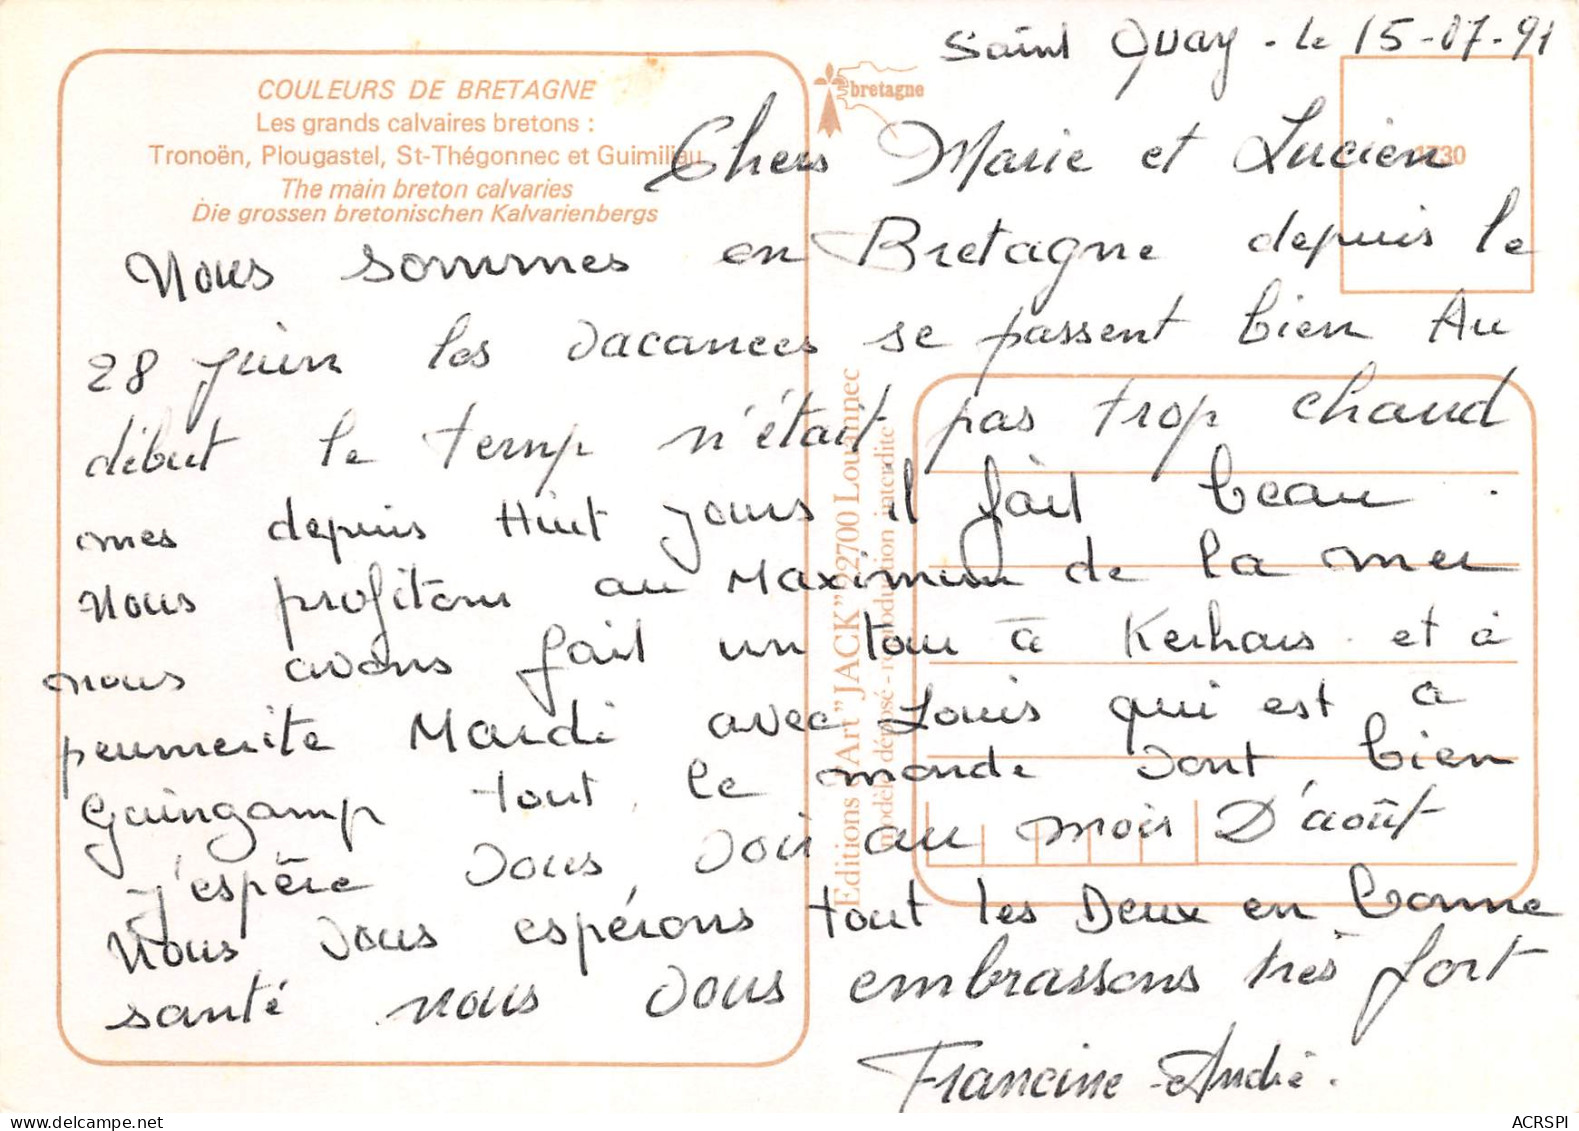 Saint Quay - le 15-07-91
COULEURS DE BRETAGNE
Les grands calvaires bretons :
Tronoën, Plougastel, St-Thégonnec et Guimiliau
The main breton calvaries
Die grossen bretonischen Kalvarienbergs
bretagne
Chers Marie et Lucien
Nous sommes en Bretagne depuis le
28 juin les vacances se passent bien Au
début le temp n'était pas trop chaud
mes depuis Huit jours il fait beau.
Nous profitons au Maximum de la mer
nous avons fait un tour à Kerhars et à
peumerite Mardi avec Louis qui est à
Guingamp tout le monde vont bien
j'espère vous voir au mois D'août
Nous vous espérons tout les Deux en bonne
santé nous vous embrassons très fort
Francine - André.
Editions d'Art "JACK" 22700 Louannec
modèle déposé - reproduction interdite
ACRSPI